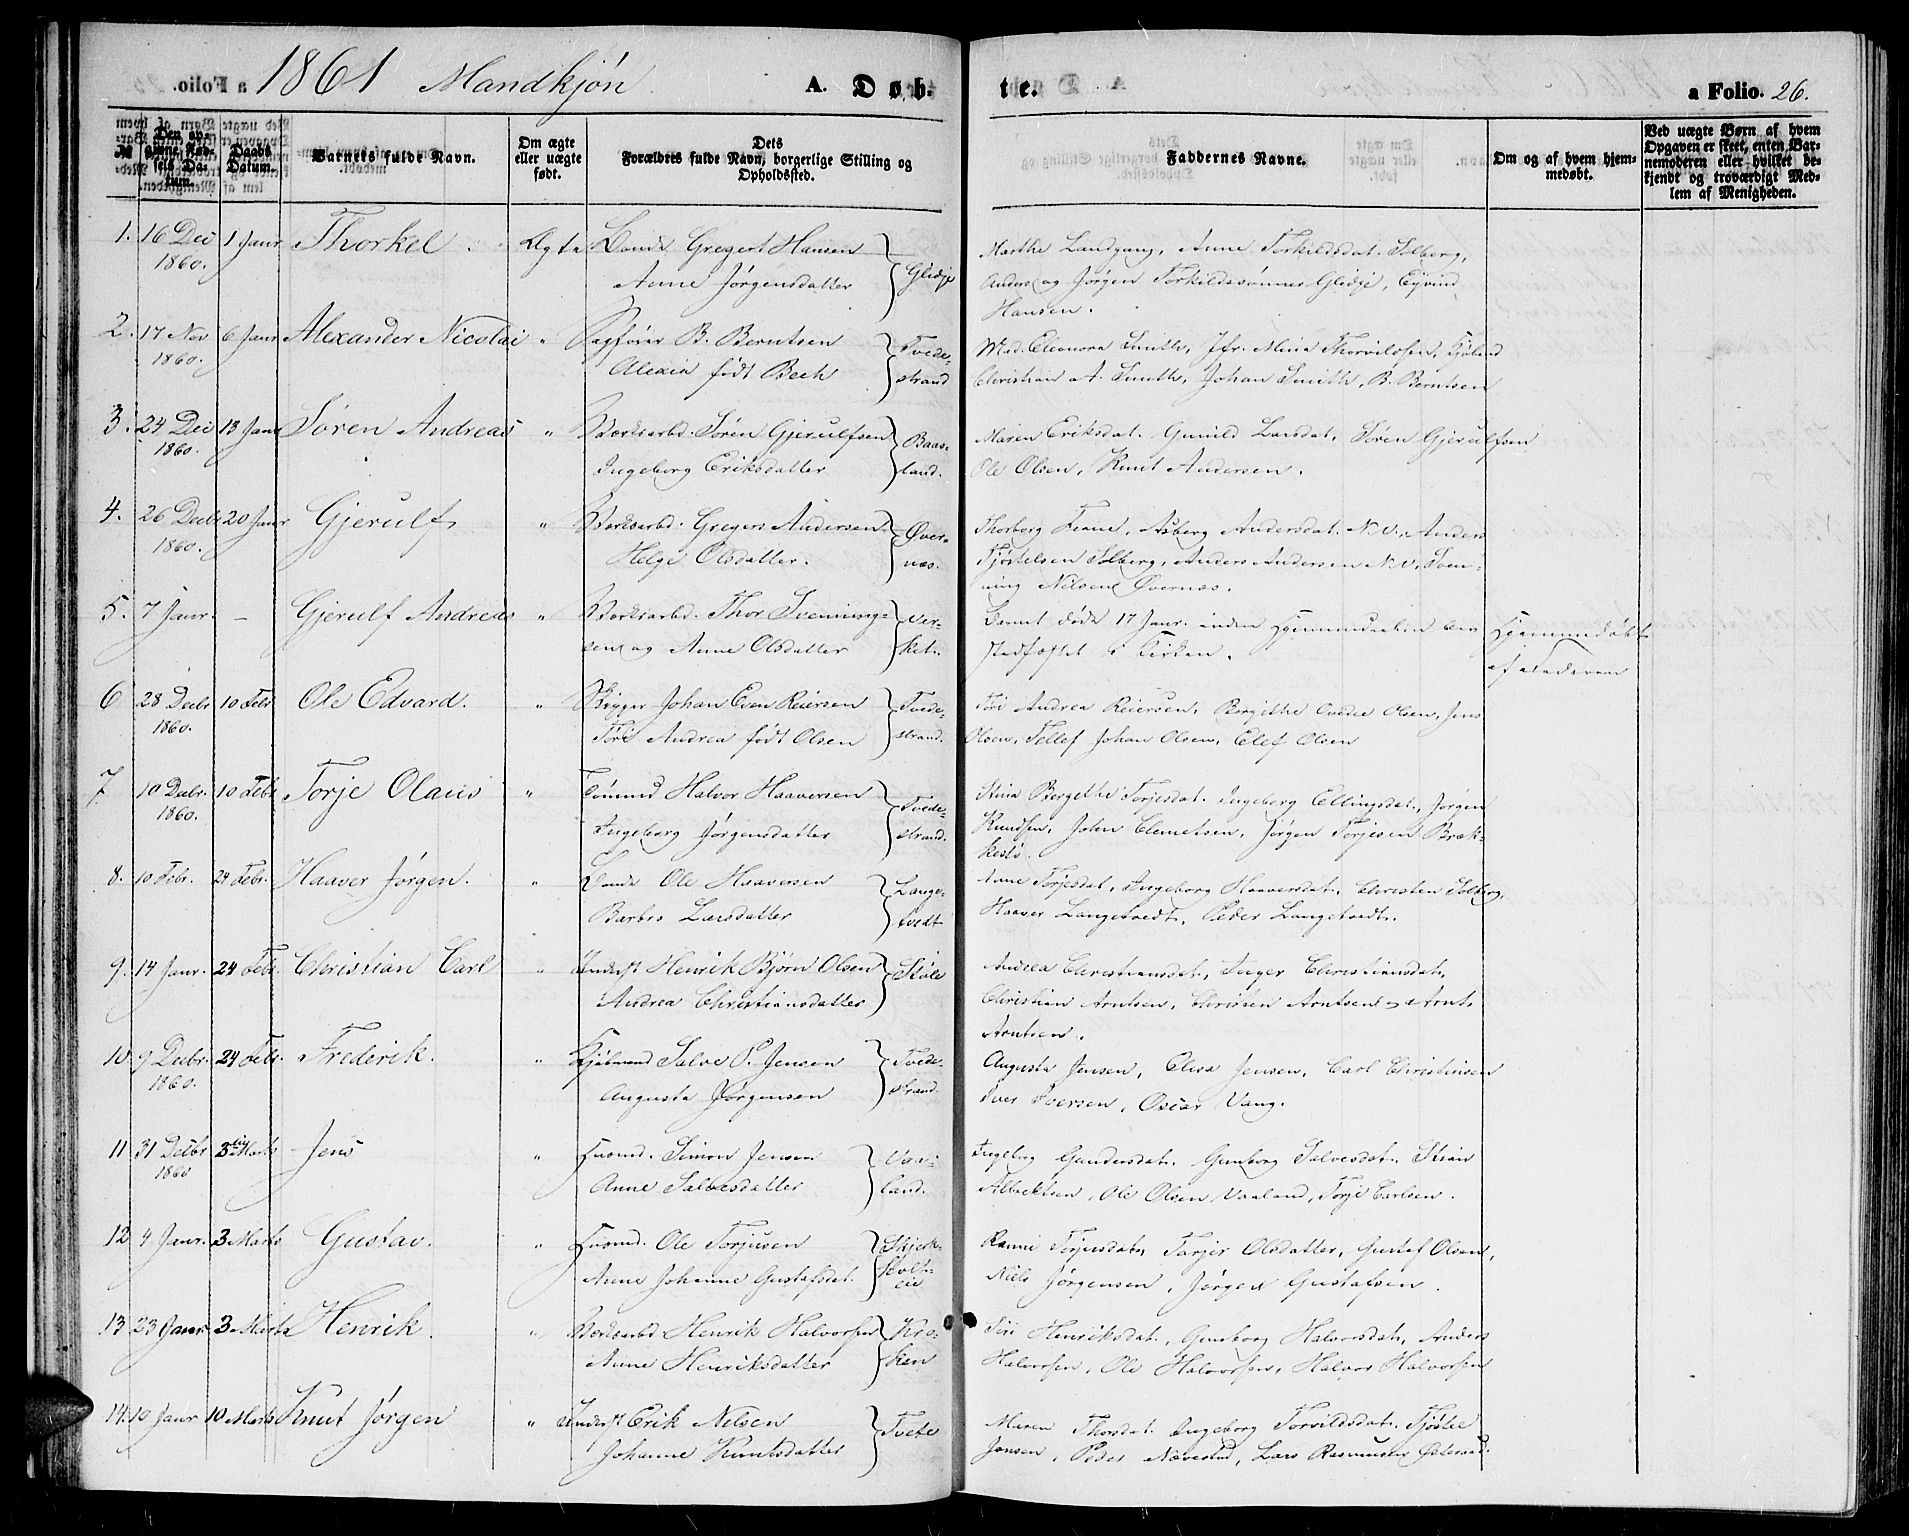 1861 Mandkjøn A. Døb-
te. a Folio. 26.
No Den opgivne Fødsels Datum. Daabs Datum. Barnets fulde Navn. Om ægte eller uægte født. Dets Forældres fulde Navn, borgerlige Stilling og Opholdssted. Faddernes Navne. Om og af hvem hjemmedøbt. Ved uægte Børn af hvem Opgaven er skeet, enten Barnemoderen eller hvilket bekjendt og troværdigt Medlem af Menigheden.
1. 16 Dec 1 Janr Thorkel Ægte Bonde Gregert Hansen Marthe Landgang, Anne Torkildsdat. Solberg,
1860. Anne Jørgensdatter Glidje Anders og Jørgen Torkildssønner Glidje, Eyvind
Hansen.
2. 17 Nov 6 Janr Alexander Nicolai " Sagfører B. Berntsen Tvede- Mad. Eleonora Smith, Jfr. Mina Thorvildsen,
1860. Alexia født Bech strand Christian A. Smith, Johan Smith, B. Berntsen
3. 24 Dec 13 Janr Søren Andreas " Værksarbd. Søren Gjerulfsen Baas- Maren Eriksdat. Gunild Larsdat, Søren Gjerulfsen
1860. Ingeborg Eriksdatter land. Ole Olsen, Knut Andersen.
4. 26 Decbr 20 Janr Gjerulf " Værksarbd. Gregers Andersen Øver- Thorborg Asberg Andersdat. N.V., Anders
1860. Helge Olsdatter. næs. Tjøstelsen Solberg, Anders Andersen N.V., Sven-
ning Nilsen Øvernæs.
5. 7 Janr. - Gjerulf Andreas " Værksarbd. Thor Svenning- Ver- Barnet døde 17 Janr. inden Hjemmedaaben blev Hjemmedøbt
sen og Anne Olsdatter ket. stadfæstet i Kirken. af Faderen
6 28 Decbr 10 Febr Ole Edvard. " Skipper Johan Even Reiersen Tvede- Tøri Andrea Reiersen, Bergithe Olsen, Jens
1860. Tøri Andrea født Olsen strand. Olsen, Tellef Johan Olsen, Elef Olsen
7. 10 Decbr. 10 Febr Torje Olaus " Tømmd Halvor Haaversen Tvede- Stina Bergethe Torjesdat. Ingeborg Ellingsdat, Jørgen
1860. Ingeborg Jørgensdatter strand. Knudsen, John Clemetsen, Jørgen Torjesen Bræk-
kestø.
8. 10 Febr. 24 Febr. Haaver Jørgen. " Bonde Ole Haaversen Lange- Anne Torjesdat, Ingeborg Haaversdat, Christen Solberg,
Barbro Larsdatter tvedt Haaver Langetvedt, Peder Langetvedt.
9. 14 Janr. 24 Febr Christian Carl " Inderst Henrik Bjørn Olsen Støle Andrea Christiansdat, Inger Christiansdat,
Andrea Christiansdatter Christian Arntsen, Christen Arntsen & Arnt
Arntsen.
10. 9 Decbr. 24 Febr. Frederik. " Kjøbmand Salve P. Jensen Tvede- Augusta Jensen, Elisa Jensen, Carl Christensen
1860. Augusta Jørgensen strand. Iver Iversen, Oscar Vang.
11 31 Decbr 3 Marts Jens " Huusmd. Simon Jensen Vaa- Ingeborg Gundersdat. Gunborg Salvesdat. Stian
1860 Anne Salvesdatter land. Albretsen, Ole Olsen Vaaland, Torje Carlsen.
12 4 Janr. 3 Marts Gustav. " Huusmd. Ole Torjusen Skjerk- Ranni Torjusdat, Torjer Olsdatter, Gustaf Olsen,
Anne Johanne Gustafsdat. holt- Niels Jørgensen, Jørgen Gustafsen.
eie
13 23 Janr 3 Marts Henrik. " Værksarbd Henrik Halvorsen Kro- Tøri Henriksdat., Gunborg Halvorsdat, Anders
Anne Henriksdatter ken Halvorsen, Ole Halvorsen, Halvor Halvorsen
14. 10 Janr 10 Marts Knut Jørgen " Inderst Erik Nilsen Tvete Maren Thorsdat. Ingeborg Torvildsdat. Tjøstel
Johanne Knutsdatter Jensen, Peder Næverstad, Lars Rasmusen